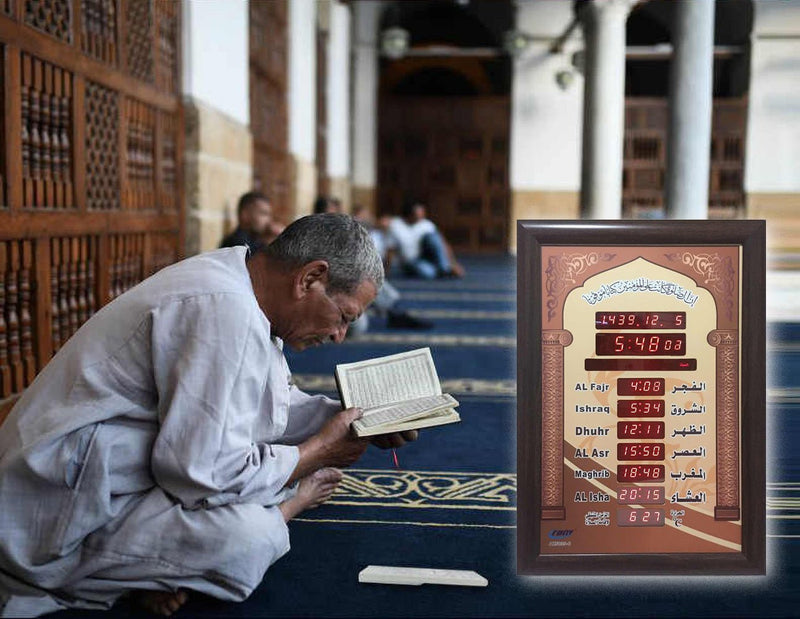 إن الصلاة كانت على المؤمنين كتابا موقوتا
1439.12. 5
5:48
AL Fajr 4:08 الفجر
Ishraq 5:34 الشروق
Dhuhr 12:11 الظهر
AL Asr 15:50 العصر
Maghrib 18:48 المغرب
AL Isha 20:15 العشاء
6 27